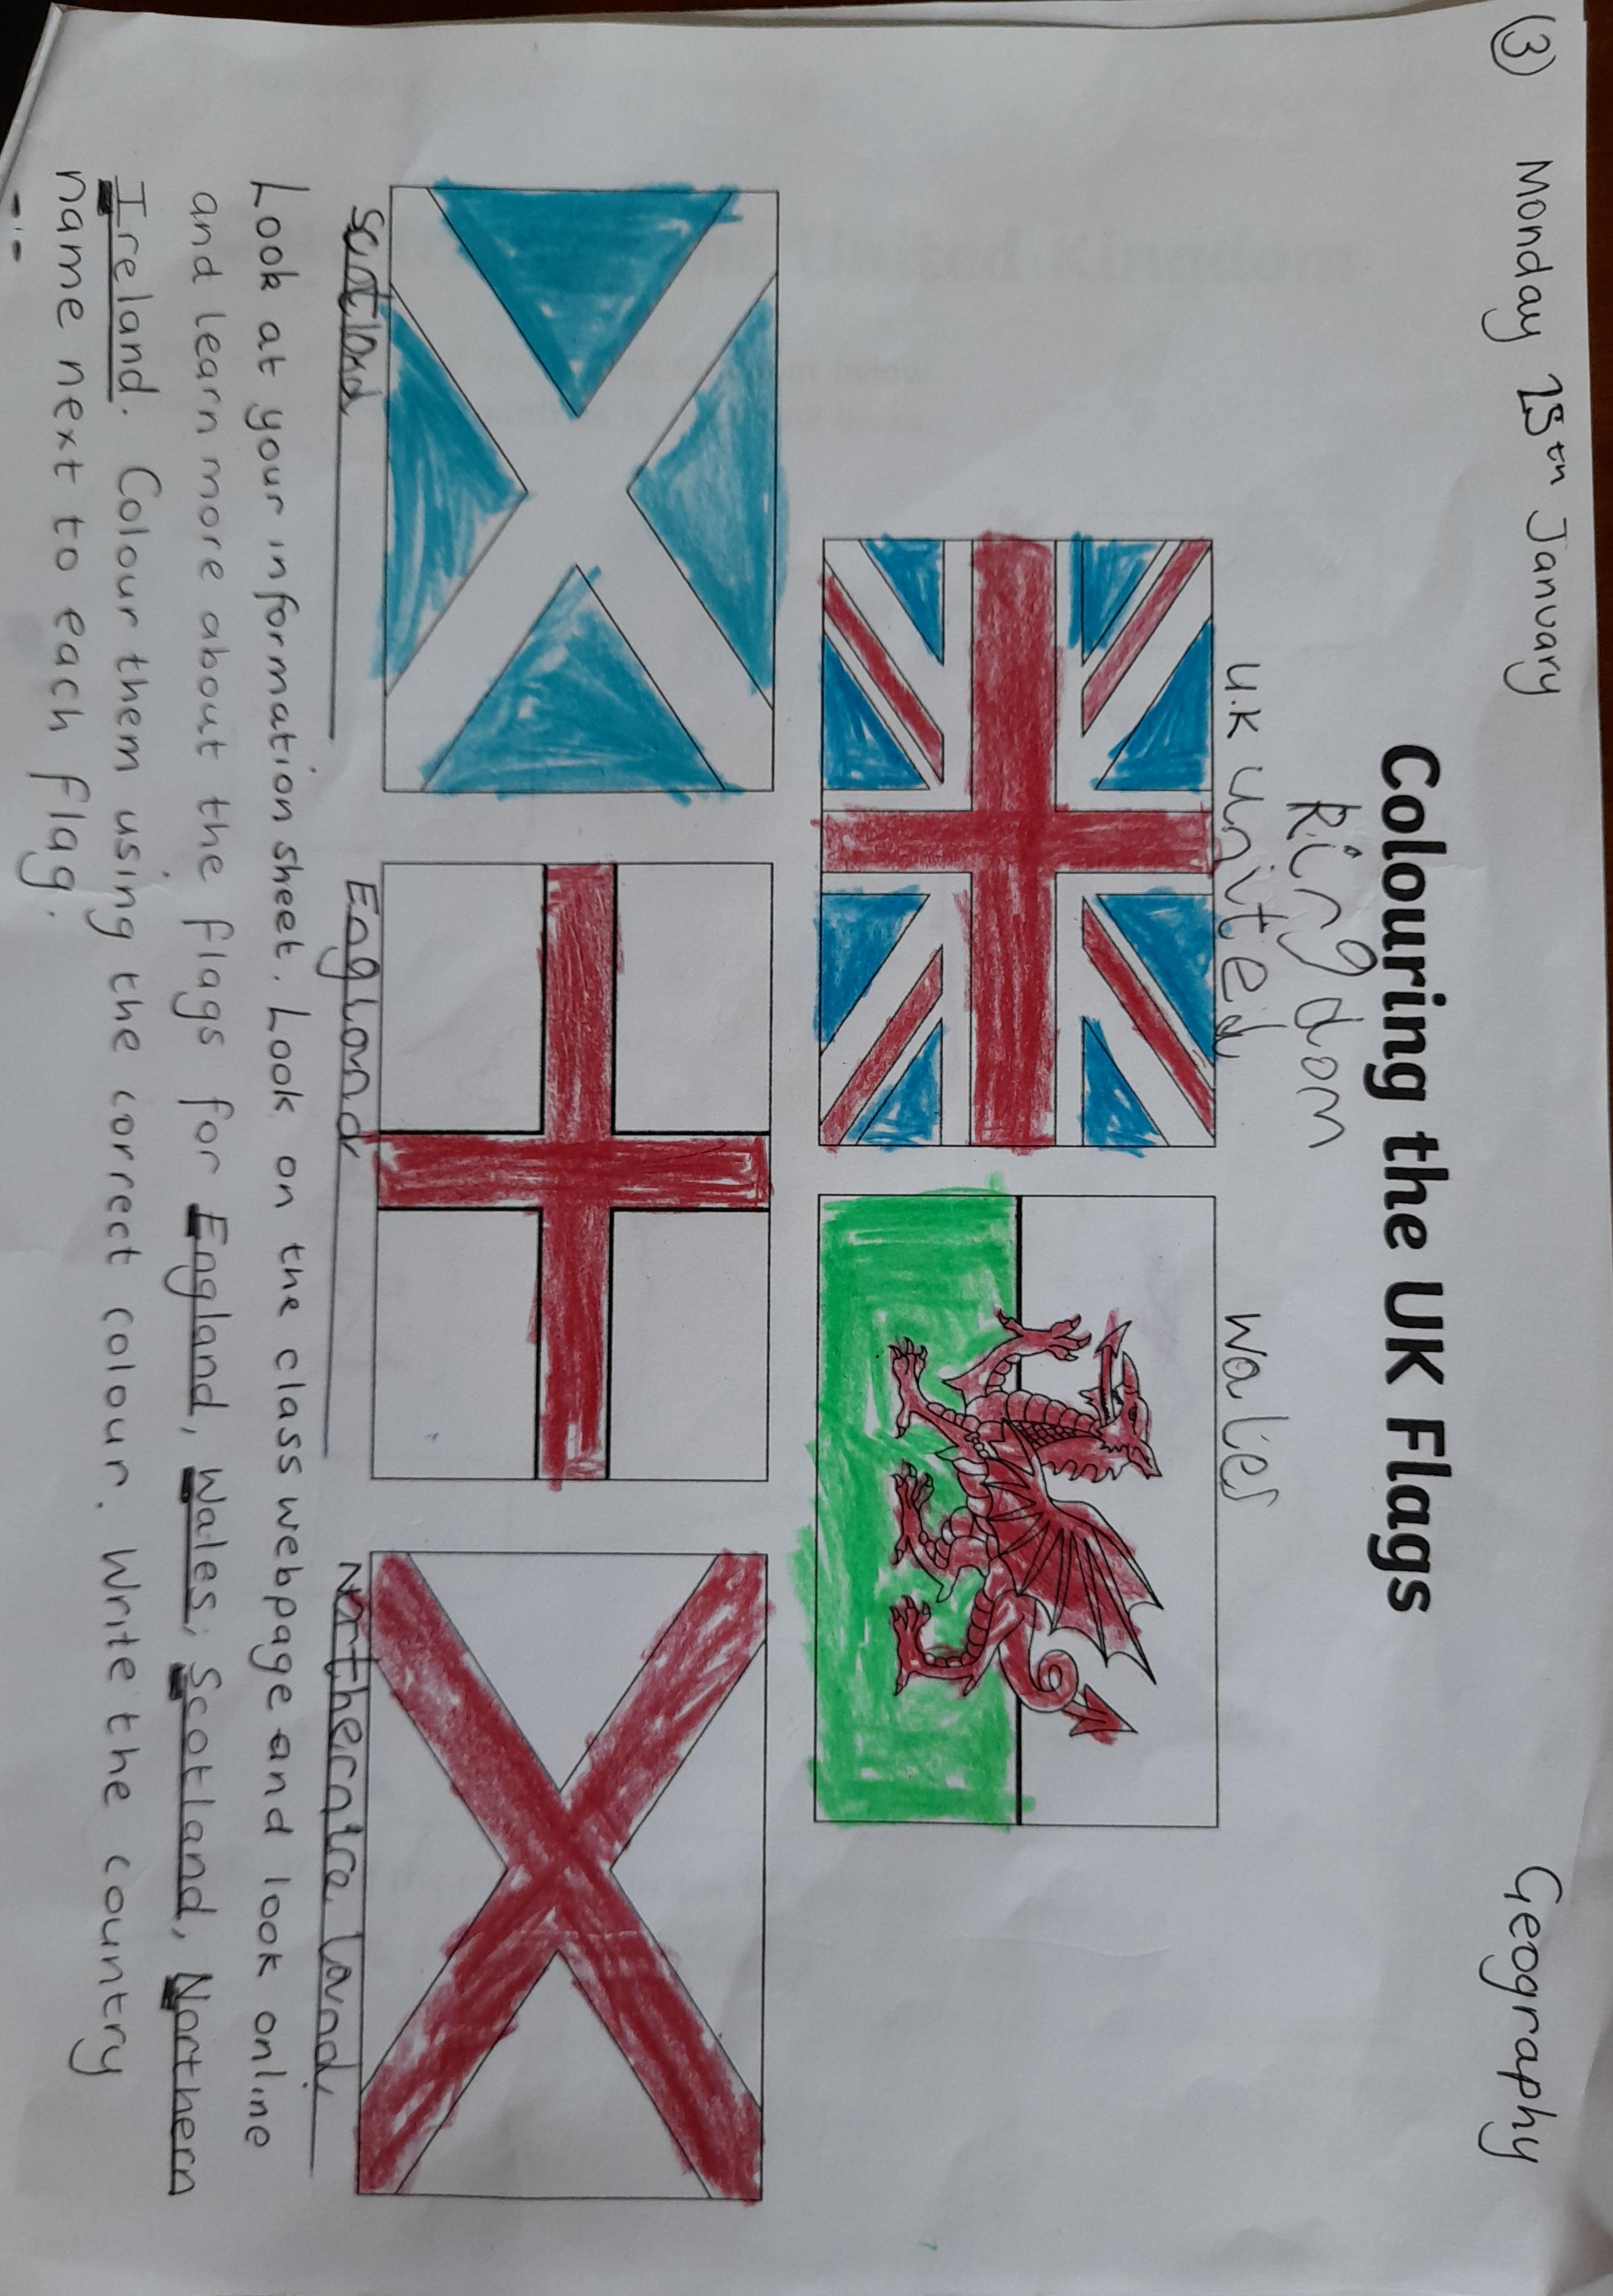 ③ Monday 25th January Geography
Colouring the UK Flags
U.K United
Kingdom
Wales
Scotland
England
Northern Ire land
Look at your information sheet. Look on the class webpage and look online
and learn more about the flags for England, Wales, Scotland, Northern
Ireland. Colour them using the correct colour. Write the country
name next to each flag.